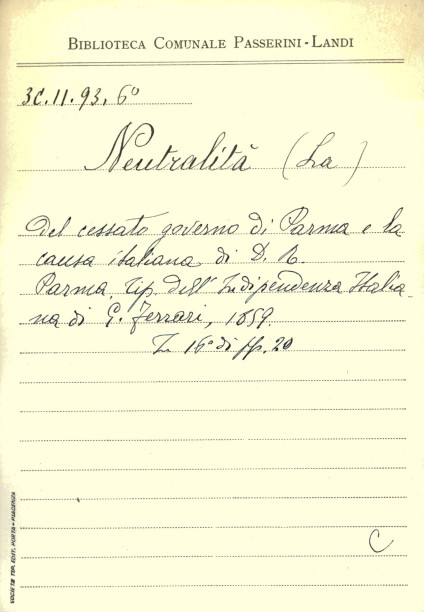 BIBLIOTECA COMUNALE PASSERINI-LANDI
3C.11.93.6º
Neutralità (La)
del cessato governo di Parma e la
causa italiana di D. R.
Parma, Tip. dell'Indipendenza Italia-
na di G. Ferrari, 1859.
In 16º di pp. 20
C
SOCIETÀ TIP. EDIT. PORTA - PIACENZA